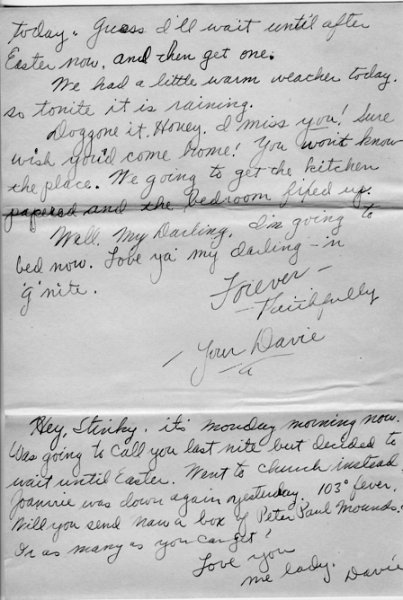 today. Guess I'll wait until after
Easter now, and then get one.
We had a little warm weacher today.
so tonite it is raining.
Doggone it, Honey, I miss you! Sure
wish you'd come home! You won't know
the place. We going to get the kitchen
papered and the bedroom fixed up.
Well, My Darling, I'm going to
bed now. Love ya' my darling - 'n
'g' nite.
Forever -
- Faithfully
- Your Davie
Hey, Stinky, it's monday morning now.
Was going to call you last nite but decided to
wait until Easter. Went to church instead.
Joannie was down again yesterday. 103° fever.
Will you send Nana a box of Peter Paul Mounds.
Or as many as you can get!
Love you
me lady. Davie